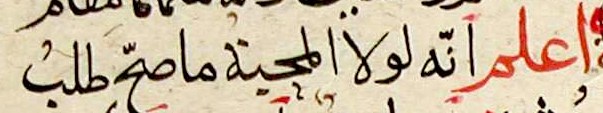 اعلم انّه لولا المحبة ما صحّ طلب